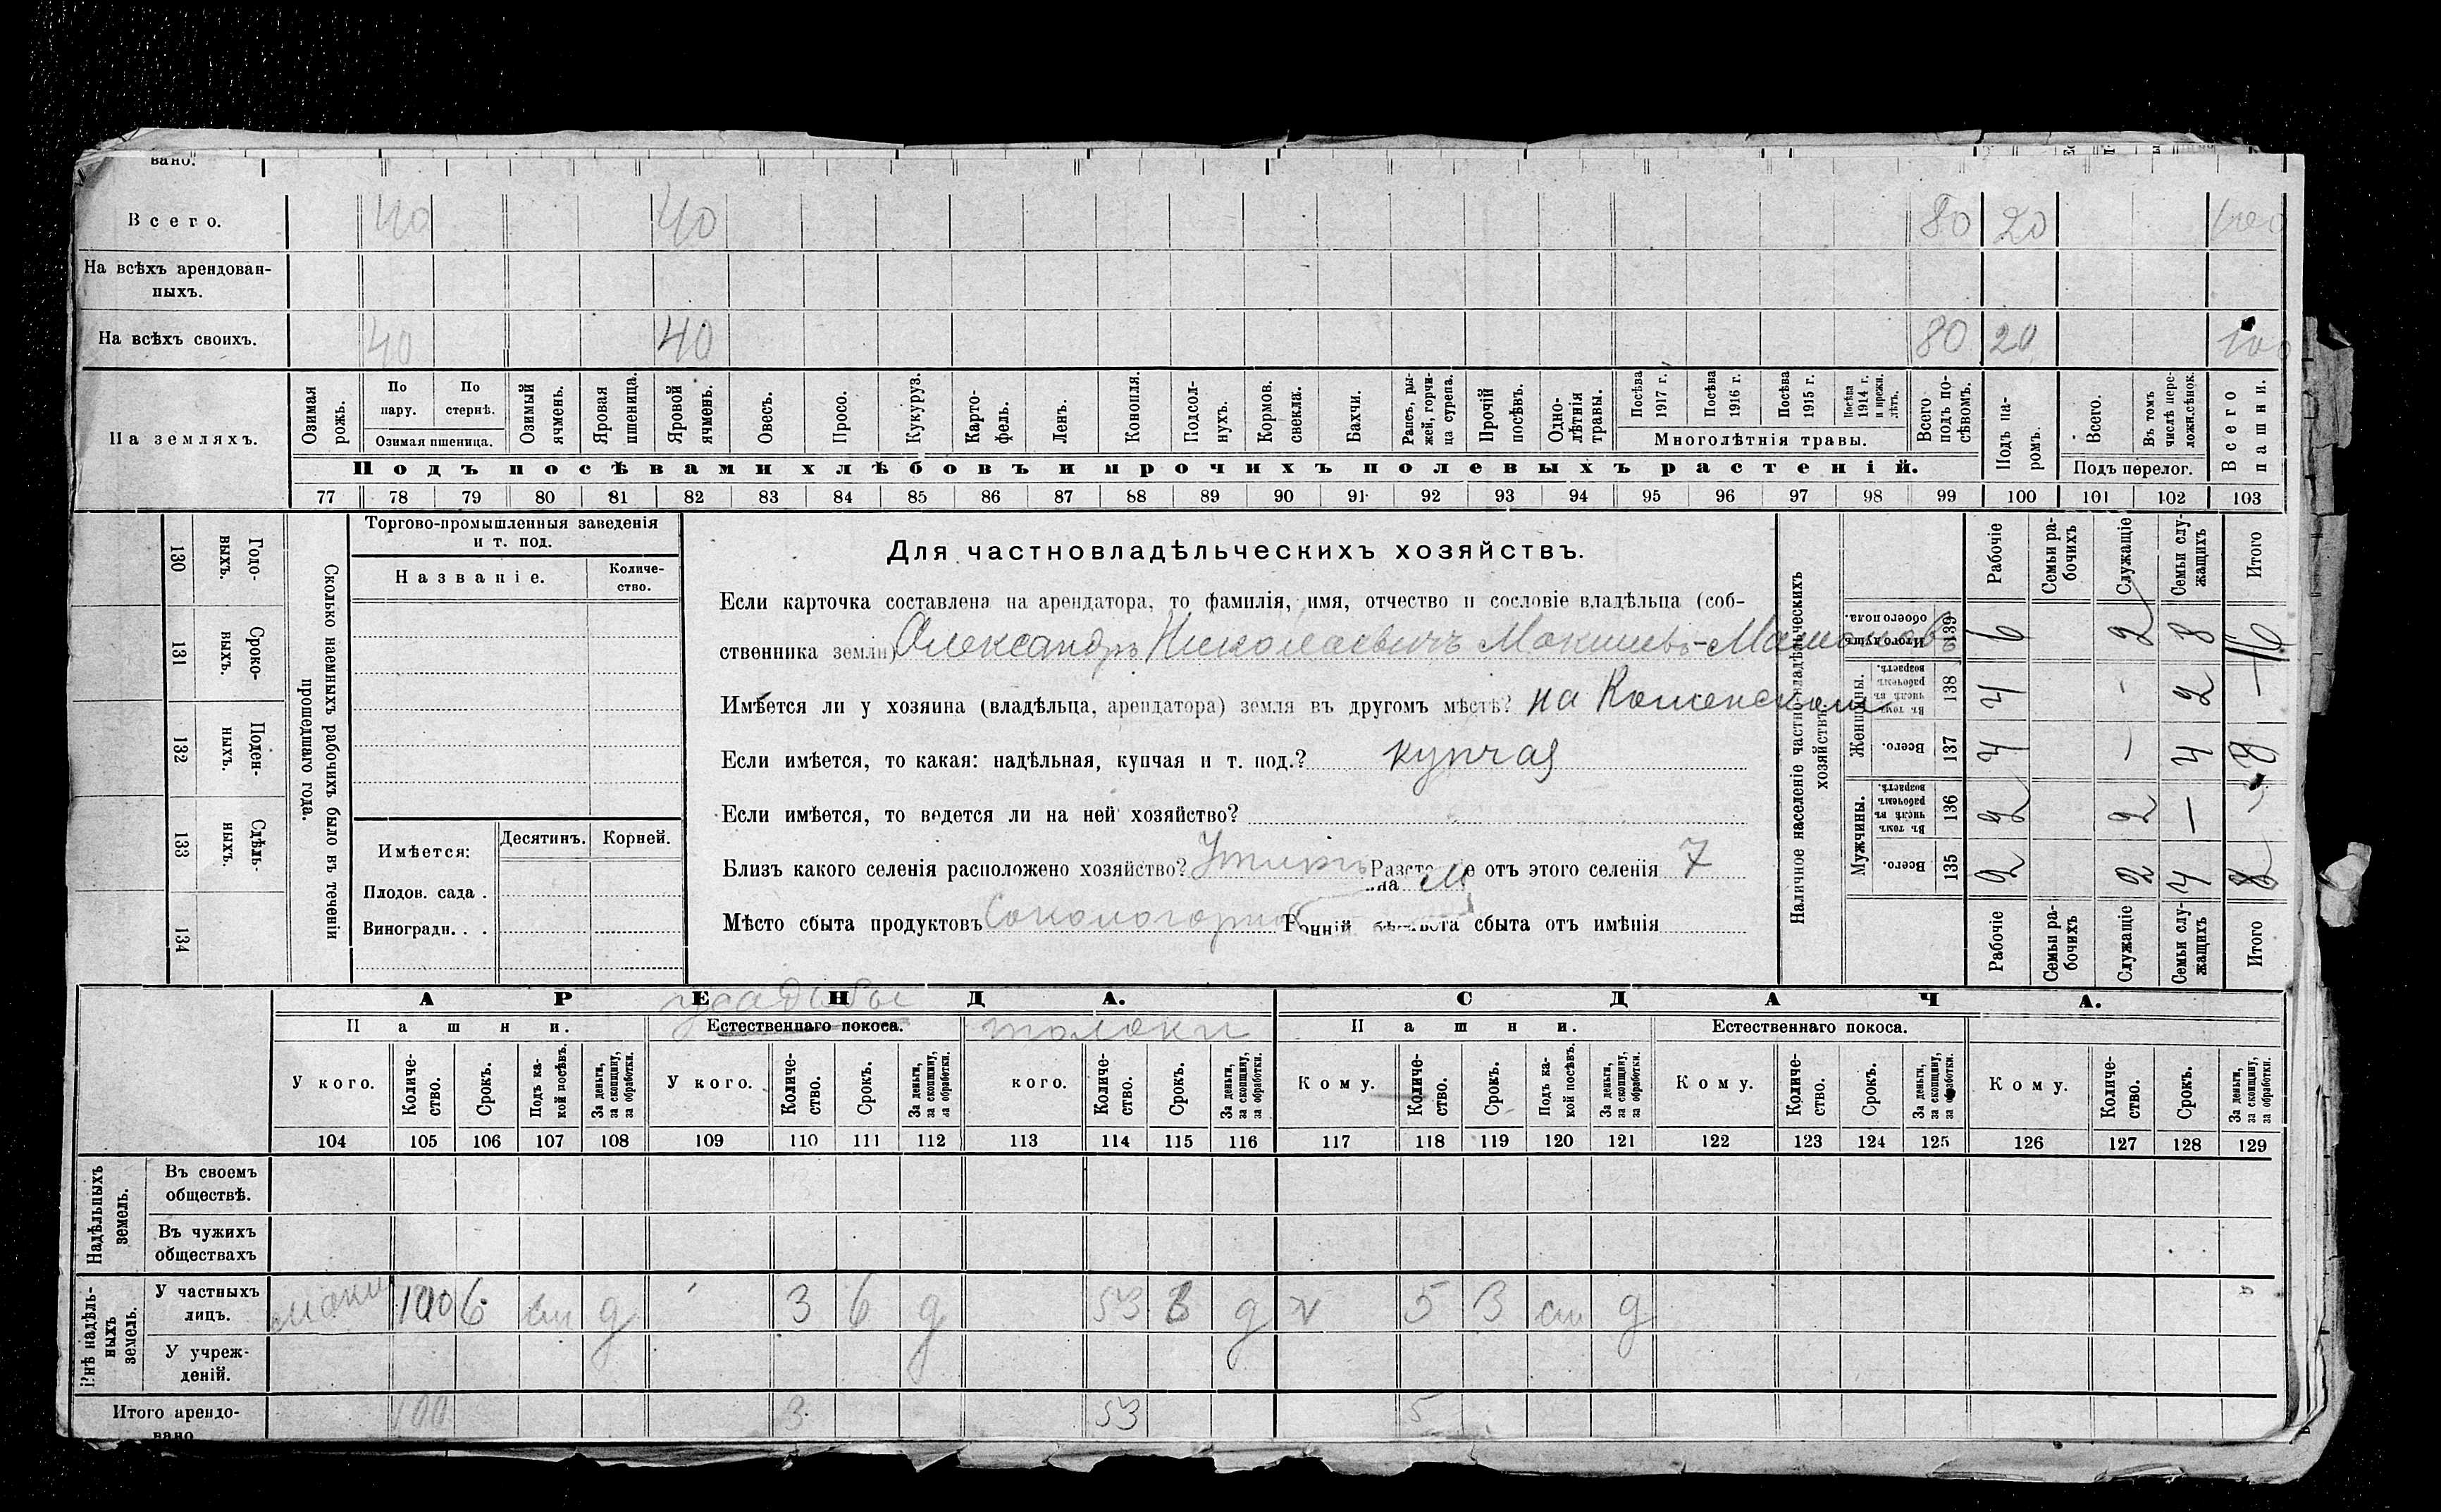 вано.
Всего. 40 40 80 20 100
На всѣхъ арендован-
ныхъ.
На всѣхъ своихъ. 40 40 80 20 100
На земляхъ.
Озимая рожь. По пару. По стернѣ. Озимая пшеница. Озимый ячмень. Яровая пшеница. Яровой ячмень. Овесъ. Просо. Кукуруз. Карто-фель. Ленъ. Конопля. Подсол-нухъ. Кормов. свекла. Бахчи. Рапсъ, ры-жей, горчи-ца сурепа. Прочій посѣвъ. Одно-лѣтнія травы. Посѣва 1917 г. Посѣва 1916 г. Посѣва 1915 г. Посѣва 1914 г. и прежн. лѣтъ. Многолѣтнія травы. Всего подъ по-сѣвомъ. Подъ па-ромъ. Всего. Въ томъ числѣ пере-ложн.сѣнок. Подъ перелог. Всего пашни.
Подъ посѣвами хлѣбовъ и прочихъ полевыхъ растеній.
77 78 79 80 81 82 83 84 85 86 87 88 89 90 91 92 93 94 95 96 97 98 99 100 101 102 103
130 Годо-выхъ.
131 Сроко-ныхъ.
132 Поден-ныхъ.
133 Сдѣль-ныхъ.
134
Сколько наемныхъ рабочихъ было въ теченіи
прошедшаго года.
Торгово-промышленныя заведенія
и т. под.
Названіе. Количе-ство.
Имѣется: Десятинъ. Корней.
Плодов. сада .
Виноградн. . .
Для частновладѣльческихъ хозяйствъ.
Если карточка составлена на арендатора, то фамилія, имя, отчество и сословіе владѣльца (соб-
ственника земли) Александръ Николаевичъ
Имѣется ли у хозяина (владѣльца, арендатора) земля въ другомъ мѣстѣ? на
Если имѣется, то какая: надѣльная, купчая и т. под.? купчая
Если имѣется, то ведется ли на ней хозяйство?
Близъ какого селенія расположено хозяйство? отъ этого селенія 7
Мѣсто сбыта продуктовъ сбыта отъ имѣнія
Наличное населеніе частновладѣльческихъ
хозяйствъ.
Рабочіе Семьи ра-бочихъ Служащіе Семьи слу-жащихъ Итого
Итого душъ обоего пола. 139 6 2 8 16
Женщины. Въ томъ числѣ въ рабочемъ возрастѣ. 138 4 - 2 -
Всего. 137 4 - 4 8
Мужчины. Въ томъ числѣ въ рабочемъ возрастѣ. 136 2 2 - -
Всего. 135 2 2 4 8
Рабочіе Семьи ра-бочихъ Служащіе Семьи слу-жащихъ Итого
АРЕНДА. СДАЧА.
усадьбы
Пашни. Естественнаго покоса. толоки Пашни. Естественнаго покоса.
У кого. Количе-ство. Срокъ. Подъ ка-кой посѣвъ. За деньги, за скопщину, за обработки. У кого. Количе-ство. Срокъ. За деньги, за скопщину, за обработки. кого. Количе-ство. Срокъ. За деньги, за скопщину, за обработки. Кому. Количе-ство. Срокъ. Подъ ка-кой посѣвъ. За деньги, за скопщину, за обработки. Кому. Количе-ство. Срокъ. За деньги, за скопщину, за обработки. Кому. Количе-ство. Срокъ. За деньги, за скопщину, за обработки.
104 105 106 107 108 109 110 111 112 113 114 115 116 117 118 119 120 121 122 123 124 125 126 127 128 129
Надѣльныхъ земель.
Въ своемъ
обществѣ.
Въ чужихъ
обществахъ
Внѣ надѣль-ныхъ земель.
У частныхъ
лицъ. 100 6 д 3 6 д 53 д 5 3 д
У учреж-
деній.
Итого арендо- 100 3 53 5
вано